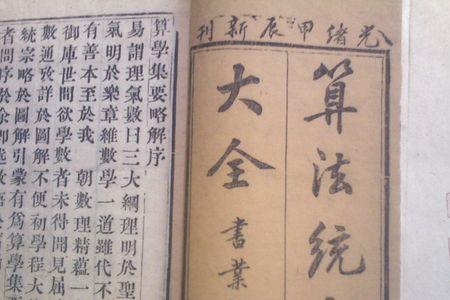 光緒甲辰新刊
算法統
大全
書業
算學集要略解序
易謂理氣數曰三大綱理明於聖
氣明於樂章維數學一道雖代不
有善本至於我 朝數理精蘊一
御庫世間欲學數者未得聞見屆
數通攷詳於圖解不便初學程大
統宗略於圖解引蒙有為算學集
者問序於余即